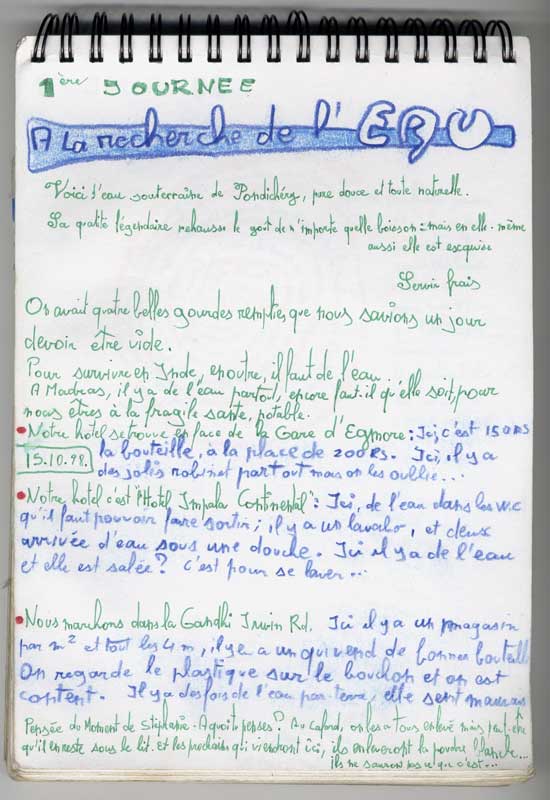 1ère JOURNEE
A La recherche de l' EAU
Voici l'eau souterraine de Pondichéry, pure douce et toute naturelle.
Sa qualité légendaire rehausse le goût de n'importe quelle boisson : mais en elle-même
aussi elle est exquise
Servir frais
On avait quatre belles gourdes remplies, que nous savions un jour
devoir être vide.
Pour survivre en Inde, en outre, il faut de l'eau...
A Madras, il y a de l'eau partout, encore faut-il qu'elle soit, pour
nous êtres à la fragile santé, potable.
• Notre hotel se trouve en face de la Gare d'Egmore : Ici, c'est 150 RS
15.10.98. la bouteille, à la place de 200 RS. Ici, il y a
des jolis robinet partout mais on les oublie...
• Notre hotel c'est "Hotel Impala Continental" : Ici, de l'eau dans les W.C
qu'il faut pouvoir faire sortir ; il y a un lavabo, et deux
arrivée d'eau sous une douche. Ici il y a de l'eau
et elle est salée ? C'est pour se laver...
• Nous marchons dans la Gandhi Irwin Rd. Ici il y a un magasin
par m² et tout les 4 m, il y a un qui vend de bonnes bouteill
On regarde le plastique sur le bouchon et on est
content. Il y a des fois de l'eau par terre, elle sent mauvais
Pensée du Moment de Stéphanie - A quoi tu penses ? Au Cafard, on les a tous enlevé mais peut-être
qu'il en reste sous le lit. et les prochains qui viendront ici, ils enlèveront la poudre blanche...
ils ne sauront pas ce que c'est...